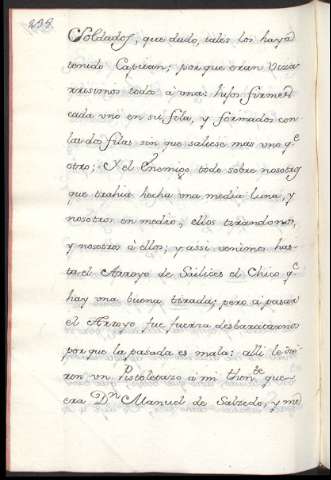 238.
Soldados, que dudo, tales los haya
tenido Capitan; porque eran Viza
rrisimos todos à una: hisose firme
cada uno en su fila, y formados con
las dos filas sin que saliese mas uno qe
otro; Y el Enemigo, todo sobre nosotros
que trahia hecha una media Luna, y
nosotros en medio, ellos tirandonos,
y nosotros à ellos; y assi venimos has-
ta el Arroyo de Saúlices el Chico qe
hay una buena tirada; pero a pasar
el Arroyo fue fuerza desbaratarnos
porque la pasada es mala: alli le die
ron un Pistoletazo à mi thente que
era Dn Manuel de Salzedo, y me